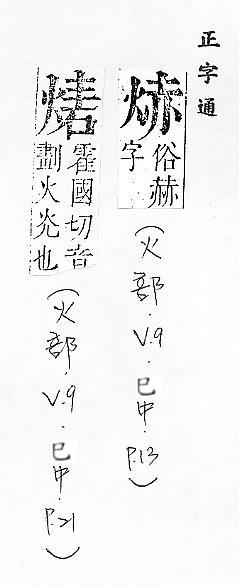 正字通
焃
俗赫
字
(火部.V.9.巳中.P.13)
霍國切音
劃火光也
(火部.V.9.巳中.P.21)